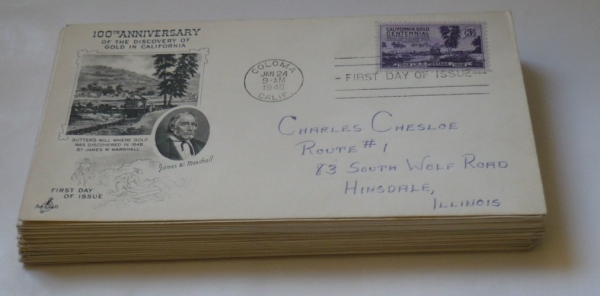 100TH ANNIVERSARY
OF THE DISCOVERY OF
GOLD IN CALIFORNIA
SUTTER'S MILL WHERE GOLD
WAS DISCOVERED IN 1848
BY JAMES W. MARSHALL
James W. Marshall
FIRST DAY
OF ISSUE
COLOMA
JAN 24
9-AM
1948
CALIF.
CALIFORNIA GOLD
CENTENNIAL
3¢
FIRST DAY OF ISSUE
CHARLES CHESLOE
ROUTE #1
83 SOUTH WOLF ROAD
HINSDALE,
ILLINOIS